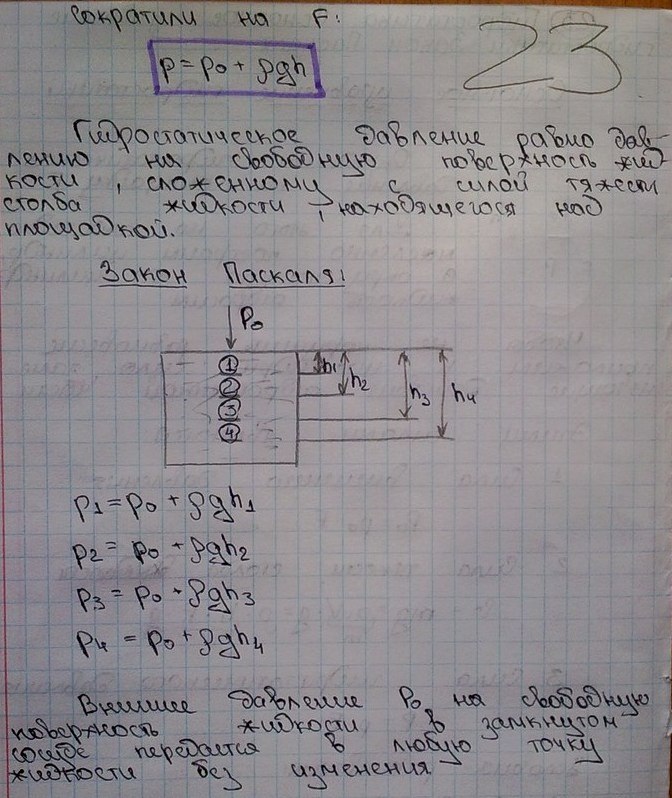 сократили на F:
23
p = p₀ + ρgh
Гидростатическое давление равно дав-
лению на свободную поверхность жид
кости, сложенному с силой тяжести
столба жидкости, находящегося над
площадкой.
Закон Паскаля:
P₀
1
2
3
4
h₁
h₂
h₃
h₄
p₁ = p₀ + ρgh₁
p₂ = p₀ + ρgh₂
p₃ = p₀ + ρgh₃
p₄ = p₀ + ρgh₄
Внешнее давление P₀ на свободную
поверхность жидкости в замкнутом
сосуде передается в любую точку
жидкости без изменения